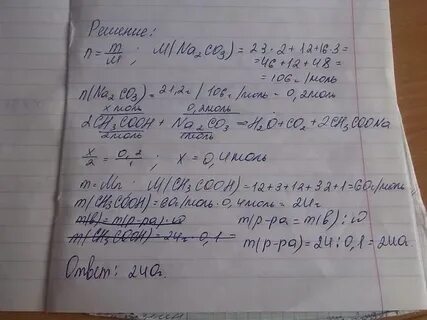 Решение:
n = m/M ; M(Na2CO3) = 23·2+12+16·3=
=46+12+48=
=106г/моль
n(Na2CO3) = 21,2г / 106г/моль = 0,2моль
х моль 0,2моль
2CH3COOH + Na2CO3 → H2O + CO2 + 2CH3COONa
2моль 1моль
x/2 = 0,2/1 ; х = 0,4моль
m = Mn ; M(CH3COOH) = 12+3+12+32+1=60г/моль
m(CH3COOH) = 60г/моль · 0,4моль = 24г
m(в) = m(р-ра)·ω m(р-ра = m(в) : ω
m(CH3COOH) = 24г · 0,1 = m(р-ра) = 24 : 0,1 = 240г.
Ответ: 240г.